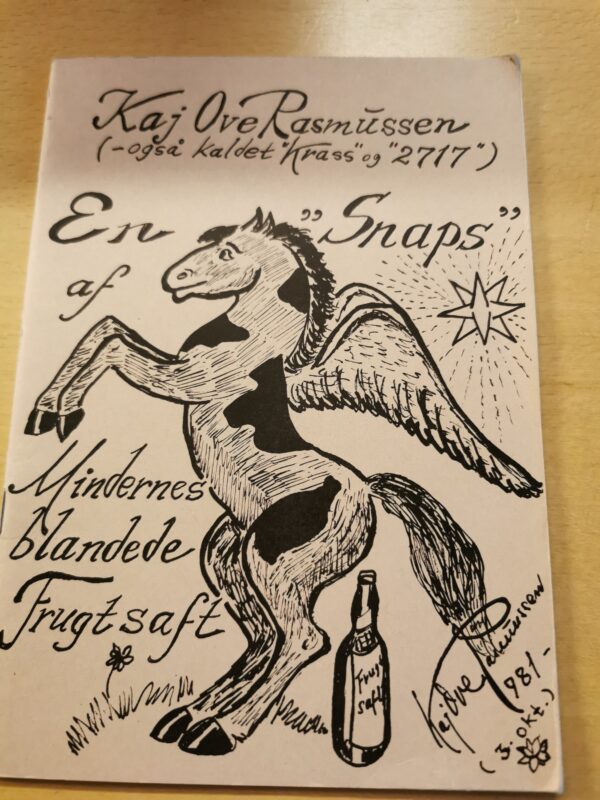 Kaj Ove Rasmussen
(-også kaldet "Krass" og "2717")
En "Snaps"
af
Mindernes
blandede
Frugtsaft
Frugt
saft
Kaj Ove Rasmussen
1981-
(3. Okt.)